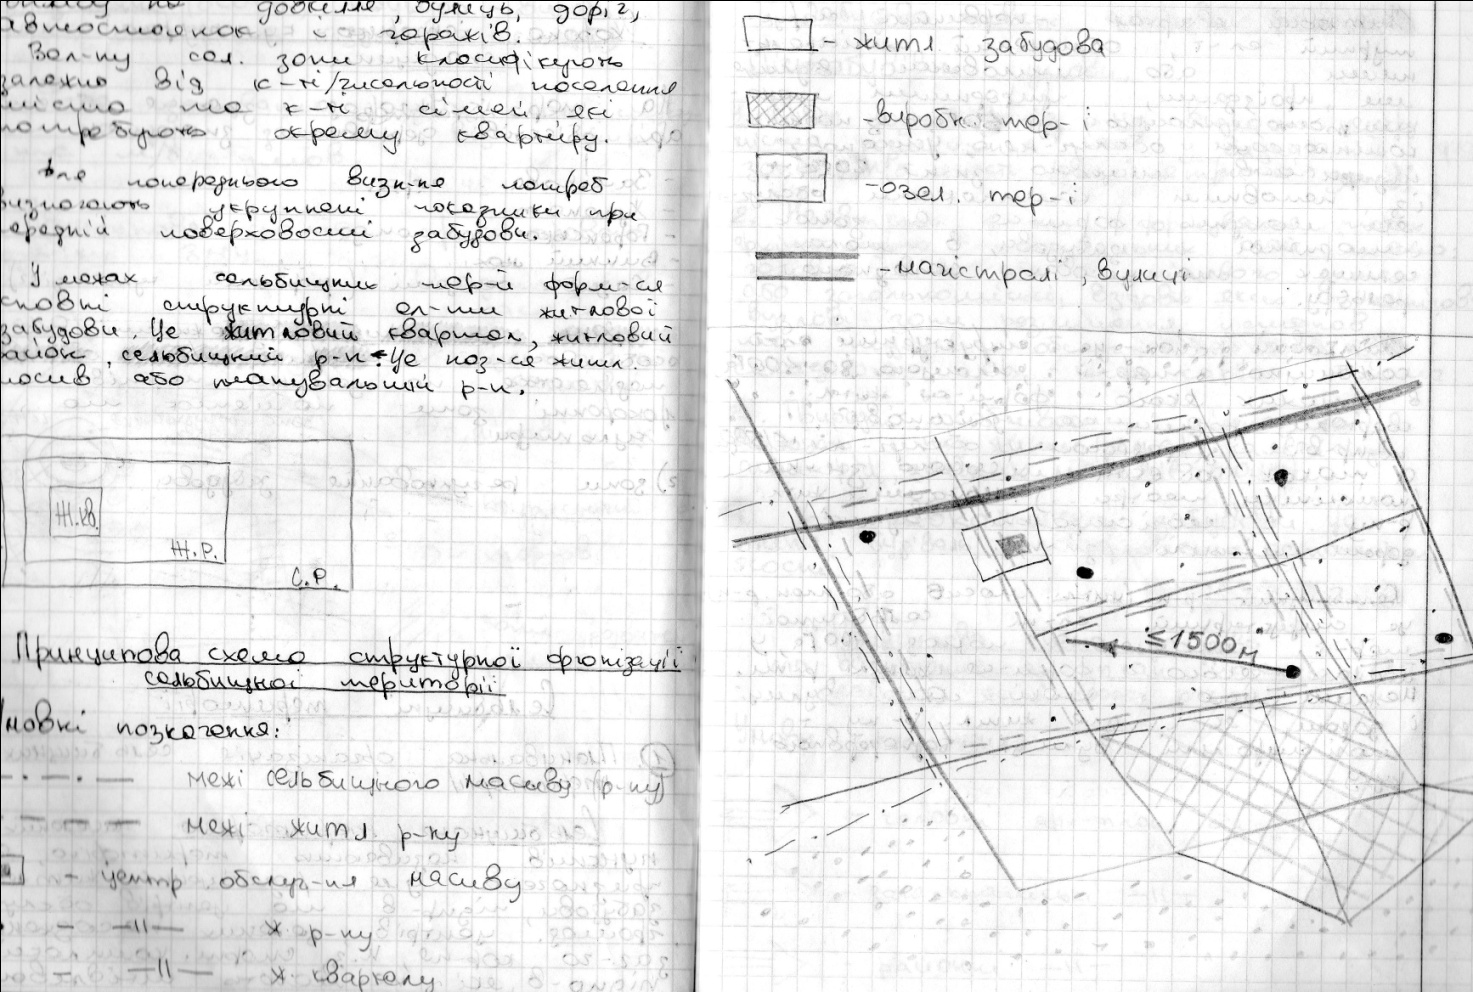 довкілля, вулиць, доріг,
автостоянок і гаражів.
Вел-ну сел. зони класифікують
залежно від к-ті/чисельності поселення
к-ті сімей які
потребують окрему квартиру.
Для попереднього визн-ня потреб
визначають укрупнені показники при
середній поверховості забудови.
У межах сельбищних тер-й форм-ся
основні структурні ел-ти житлової
забудови. Це житловий квартал, житловий
район, сельбищний р-н. Це наз-ся житл.
масив або планувальний р-н.
Ж.кв.
Ж.Р.
С.Р.
Принципова схема структурної організації
сельбищної території
Умовні позначення:
межі сельбищного масиву (р-ну)
межі житл р-ну
- центр обслуг-ня масиву
— " — ж р-ну
— " — ж кварталу
- житл забудова
- виробн. тер-і
- озел. тер-і
- магістралі, вулиці
≤1500м